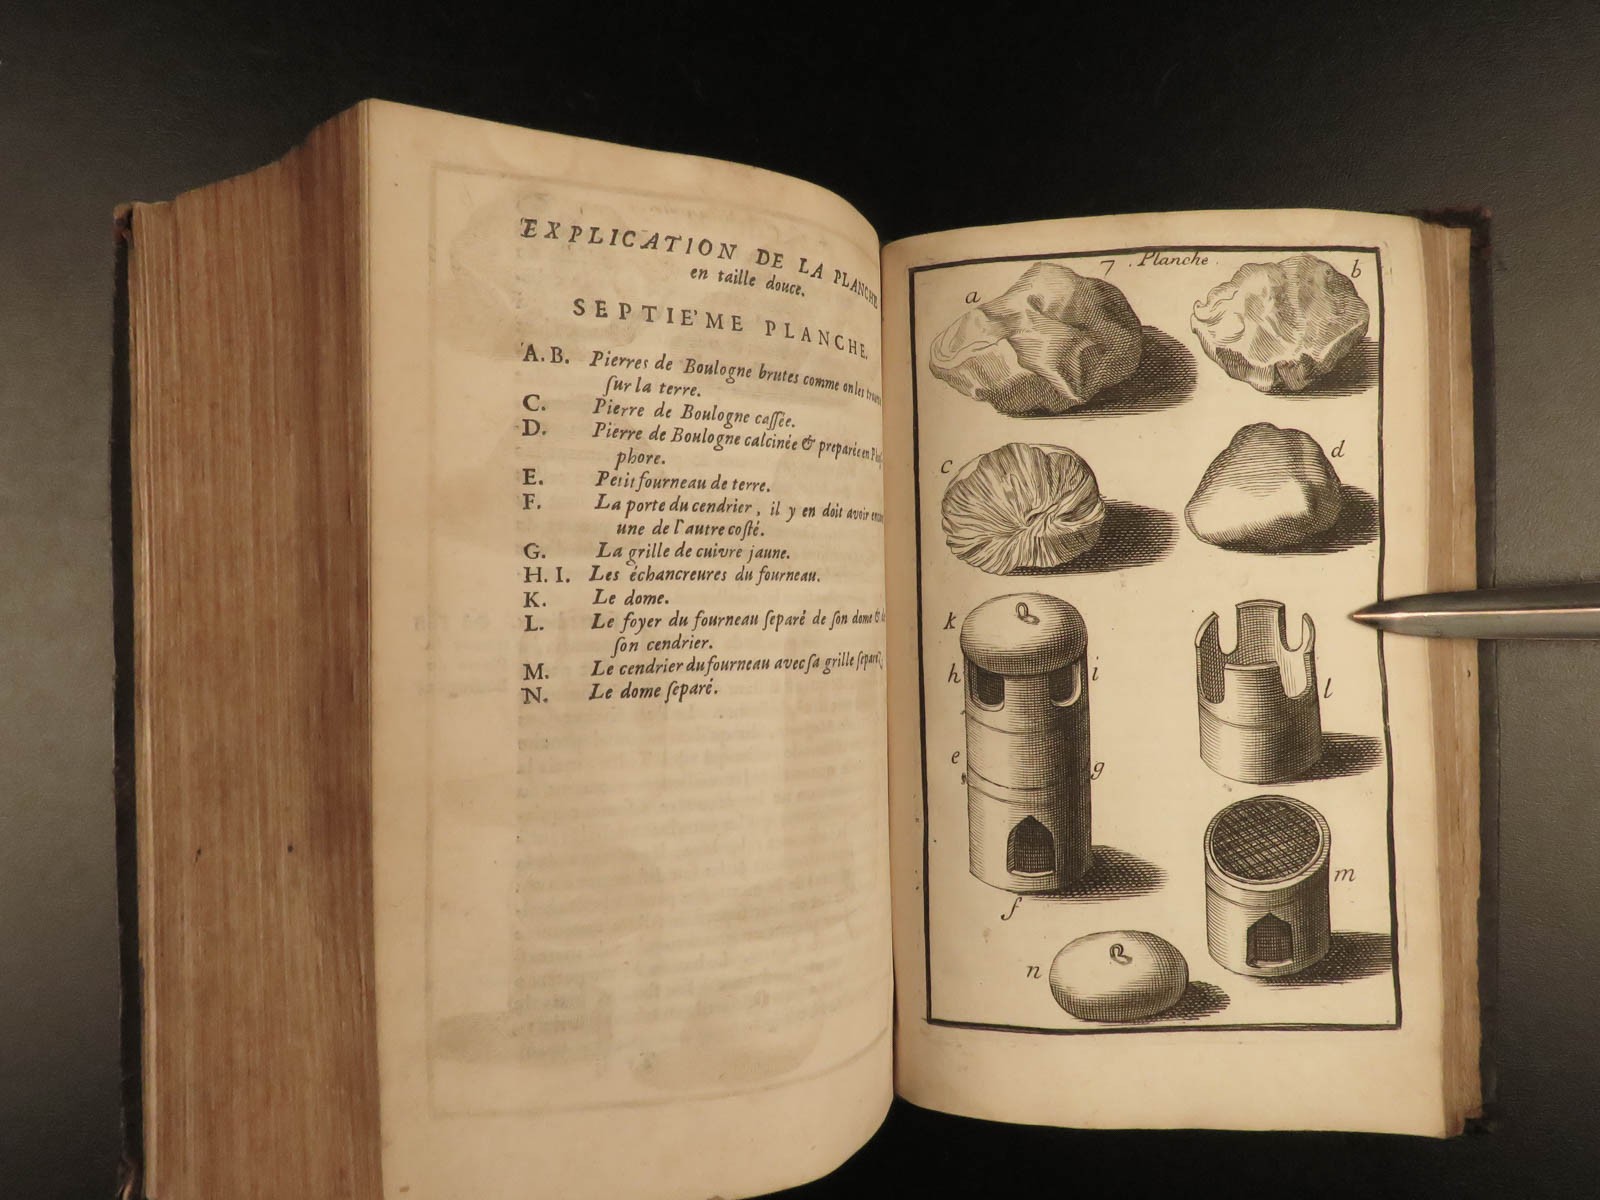 EXPLICATION DE LA PLANCHE
en taille douce.
SEPTIE'ME PLANCHE.
A. B. Pierres de Boulogne brutes comme on les
ſur la terre.
C. Pierre de Boulogne caſſée.
D. Pierre de Boulogne calcinée & preparée en
phore.
E. Petit fourneau de terre.
F. La porte du cendrier, il y en doit avoir
une de l'autre coſté.
G. La grille de cuivre jaune.
H. I. Les échancreures du fourneau.
K. Le dome.
L. Le foyer du fourneau ſeparé de ſon dome &
ſon cendrier.
M. Le cendrier du fourneau avec ſa grille ſeparé
N. Le dome ſeparé.
7. Planche.
a
b
c
d
k
h
i
l
e
g
f
m
n